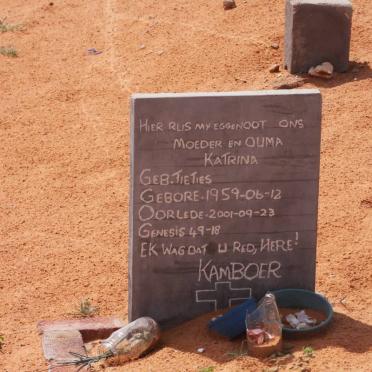 HIER RUS MY EGGENOOT ONS
MOEDER EN OUMA
KATRINA
GEB. TIETIES
GEBORE-1959-06-12
OORLEDE-2001-09-23
GENESIS 49-18
EK WAG DAT U RED, HERE!
KAMBOER